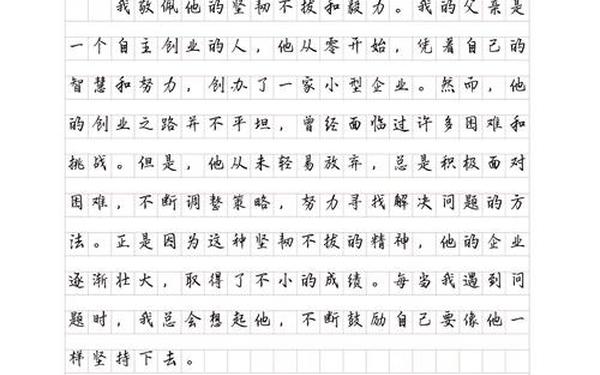 我敬佩他的坚韧不拔和毅力。我的父亲是
一个自主创业的人，他从零开始，凭着自己的
智慧和努力，创办了一家小型企业。然而，他
的创业之路并不平坦，曾经面临过许多困难和
挑战。但是，他从未轻易放弃，总是积极面对
困难，不断调整策略，努力寻找解决问题的方
法。正是因为这种坚韧不拔的精神，他的企业
逐渐壮大，取得了不小的成绩。每当我遇到问
题时，我总会想起他，不断鼓励自己要像他一
样坚持下去。